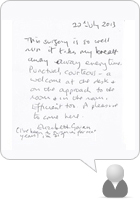 20th July 2013
This surgery is so well
run it takes my breath
away every time.
Punctual, courteous - a
welcome at the desk &
on the approach to the
room & in the room.
Efficient too. A pleasure
to come here.
Elizabeth